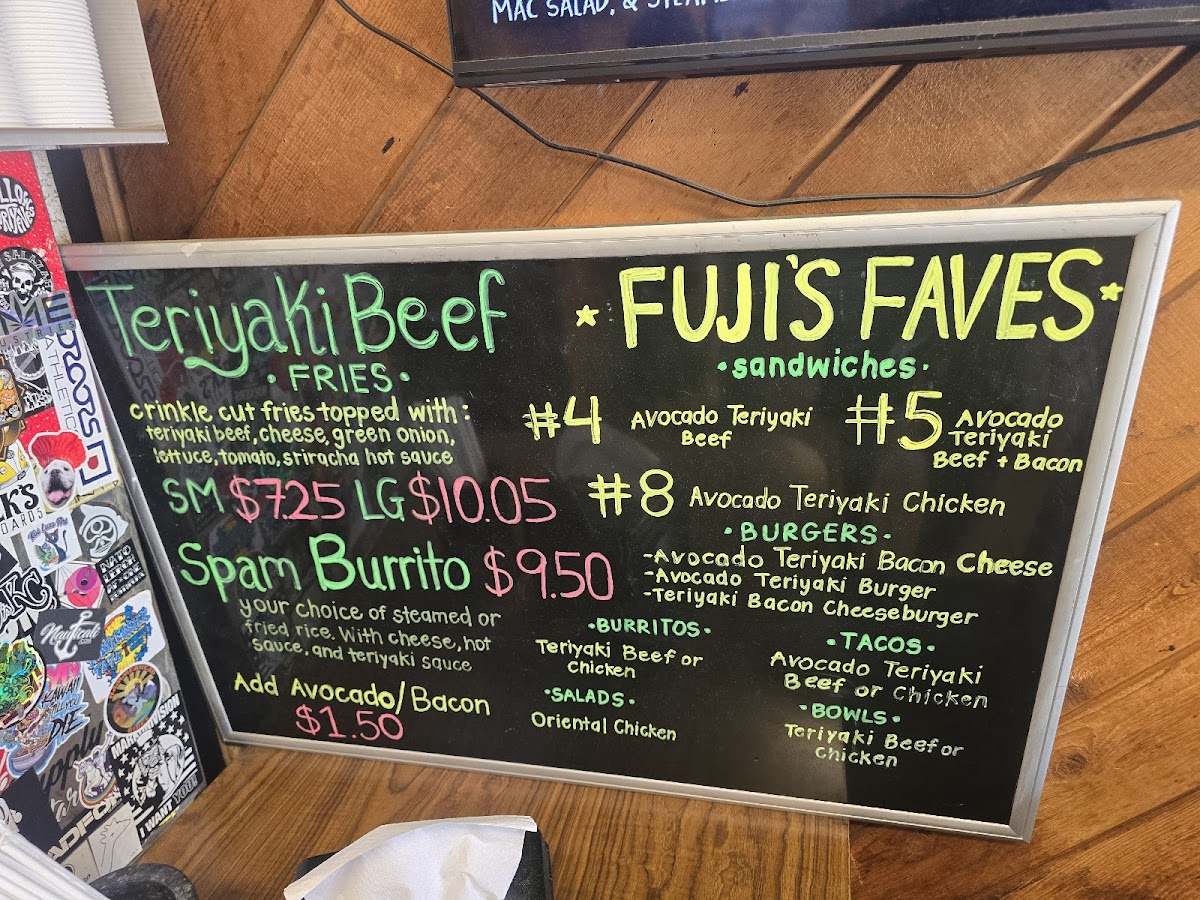 MAC SALAD, &
Teriyaki Beef
• FRIES •
crinkle cut fries topped with:
teriyaki beef, cheese, green onion,
lettuce, tomato, sriracha hot sauce
SM $7.25 LG $10.05
Spam Burrito $9.50
your choice of steamed or
fried rice. With cheese, hot
sauce, and teriyaki sauce
Add Avocado/Bacon
$1.50
FUJI'S FAVES
• sandwiches •
#4 Avocado Teriyaki
Beef
#5 Avocado
Teriyaki
Beef + Bacon
#8 Avocado Teriyaki Chicken
• BURGERS •
-Avocado Teriyaki Bacon Cheese
-Avocado Teriyaki Burger
-Teriyaki Bacon Cheeseburger
• BURRITOS •
Teriyaki Beef or
Chicken
• SALADS •
Oriental Chicken
• TACOS •
Avocado Teriyaki
Beef or Chicken
• BOWLS •
Teriyaki Beef or
Chicken
ATHLETIC
Nauticale
KAWAII
DIE
I WANT YOU